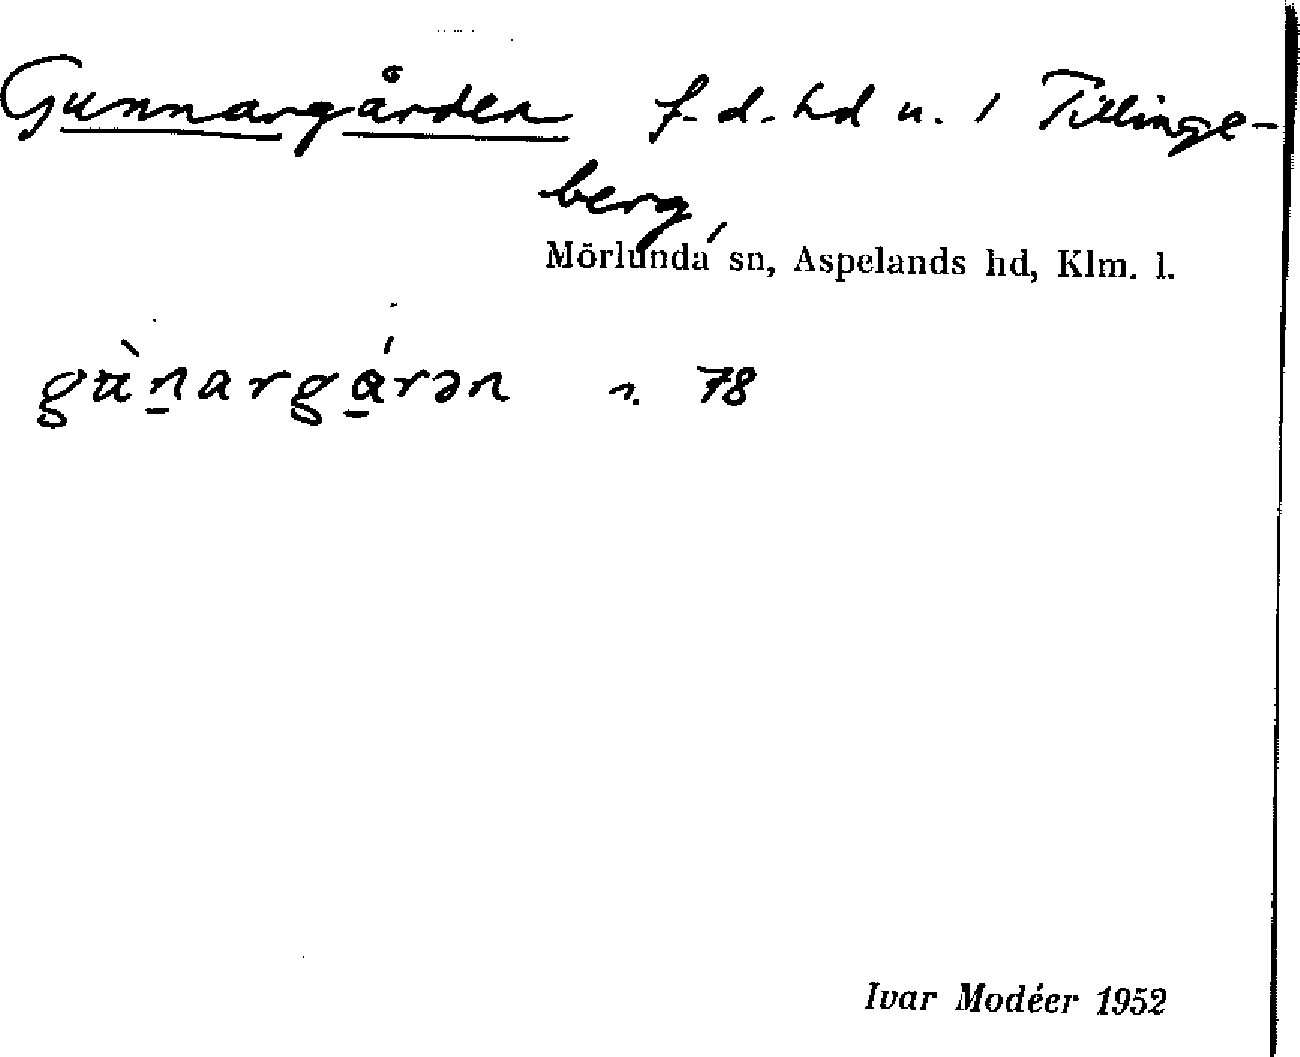 Gunnargården f. d. hd u. 1 Tillinge-
berg,
Mörlunda sn, Aspelands hd, Klm. l.
gu̇̀n̠argá̠rən n. 78
Ivar Modéer 1952